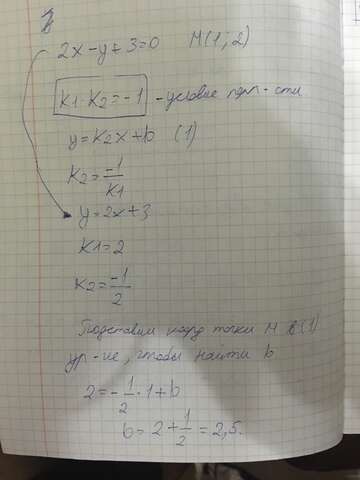 2x-y+3=0 M(1;2)
K1·K2=-1 - условие перп-сти
y=K2x+b (1)
K2=-1/K1
y=2x+3
K1=2
K2=-1/2
Подставим коорд точки M в (1)
ур-ие, чтобы найти b
2=-1/2·1+b
b=2+1/2=2,5.